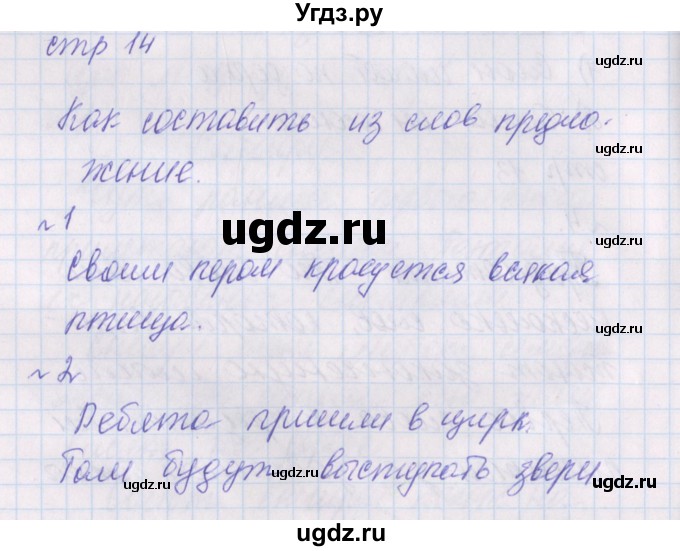 Угдз.ру
стр 14
ugdz.ru
ugdz.ru
Как составить из слов предло-
жение.
ugdz.ru
№1
ugdz.ru
ugdz.ru
Своим пером красуется всякая
птица.
ugdz.ru
№2
Ребята пришли в цирк.
Там будут выступать звери
ugdz.ru
ugdz.ru
ugdz.ru
ugdz.ru